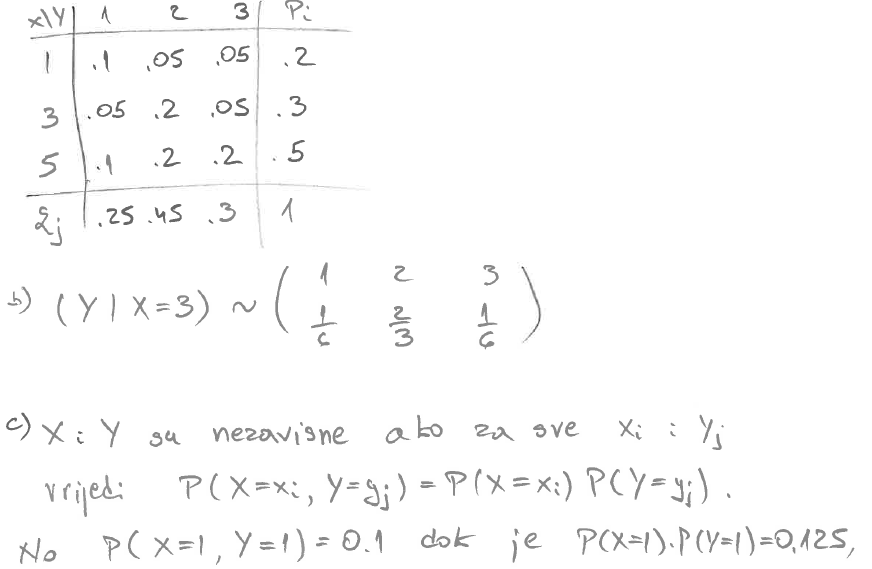 X\Y 1 2 3 Pi
1 .1 .05 .05 .2
3 .05 .2 .05 .3
5 .1 .2 .2 .5
qj .25 .45 .3 1
b) (Y | X=3) ~ ( 1 2 3
1/6 2/3 1/6 )
c) X i Y su nezavisne ako za sve xi i yj
vrijedi P(X=xi, Y=yj) = P(X=xi) P(Y=yj).
No P(X=1, Y=1) = 0.1 dok je P(X=1).P(Y=1)=0,125,